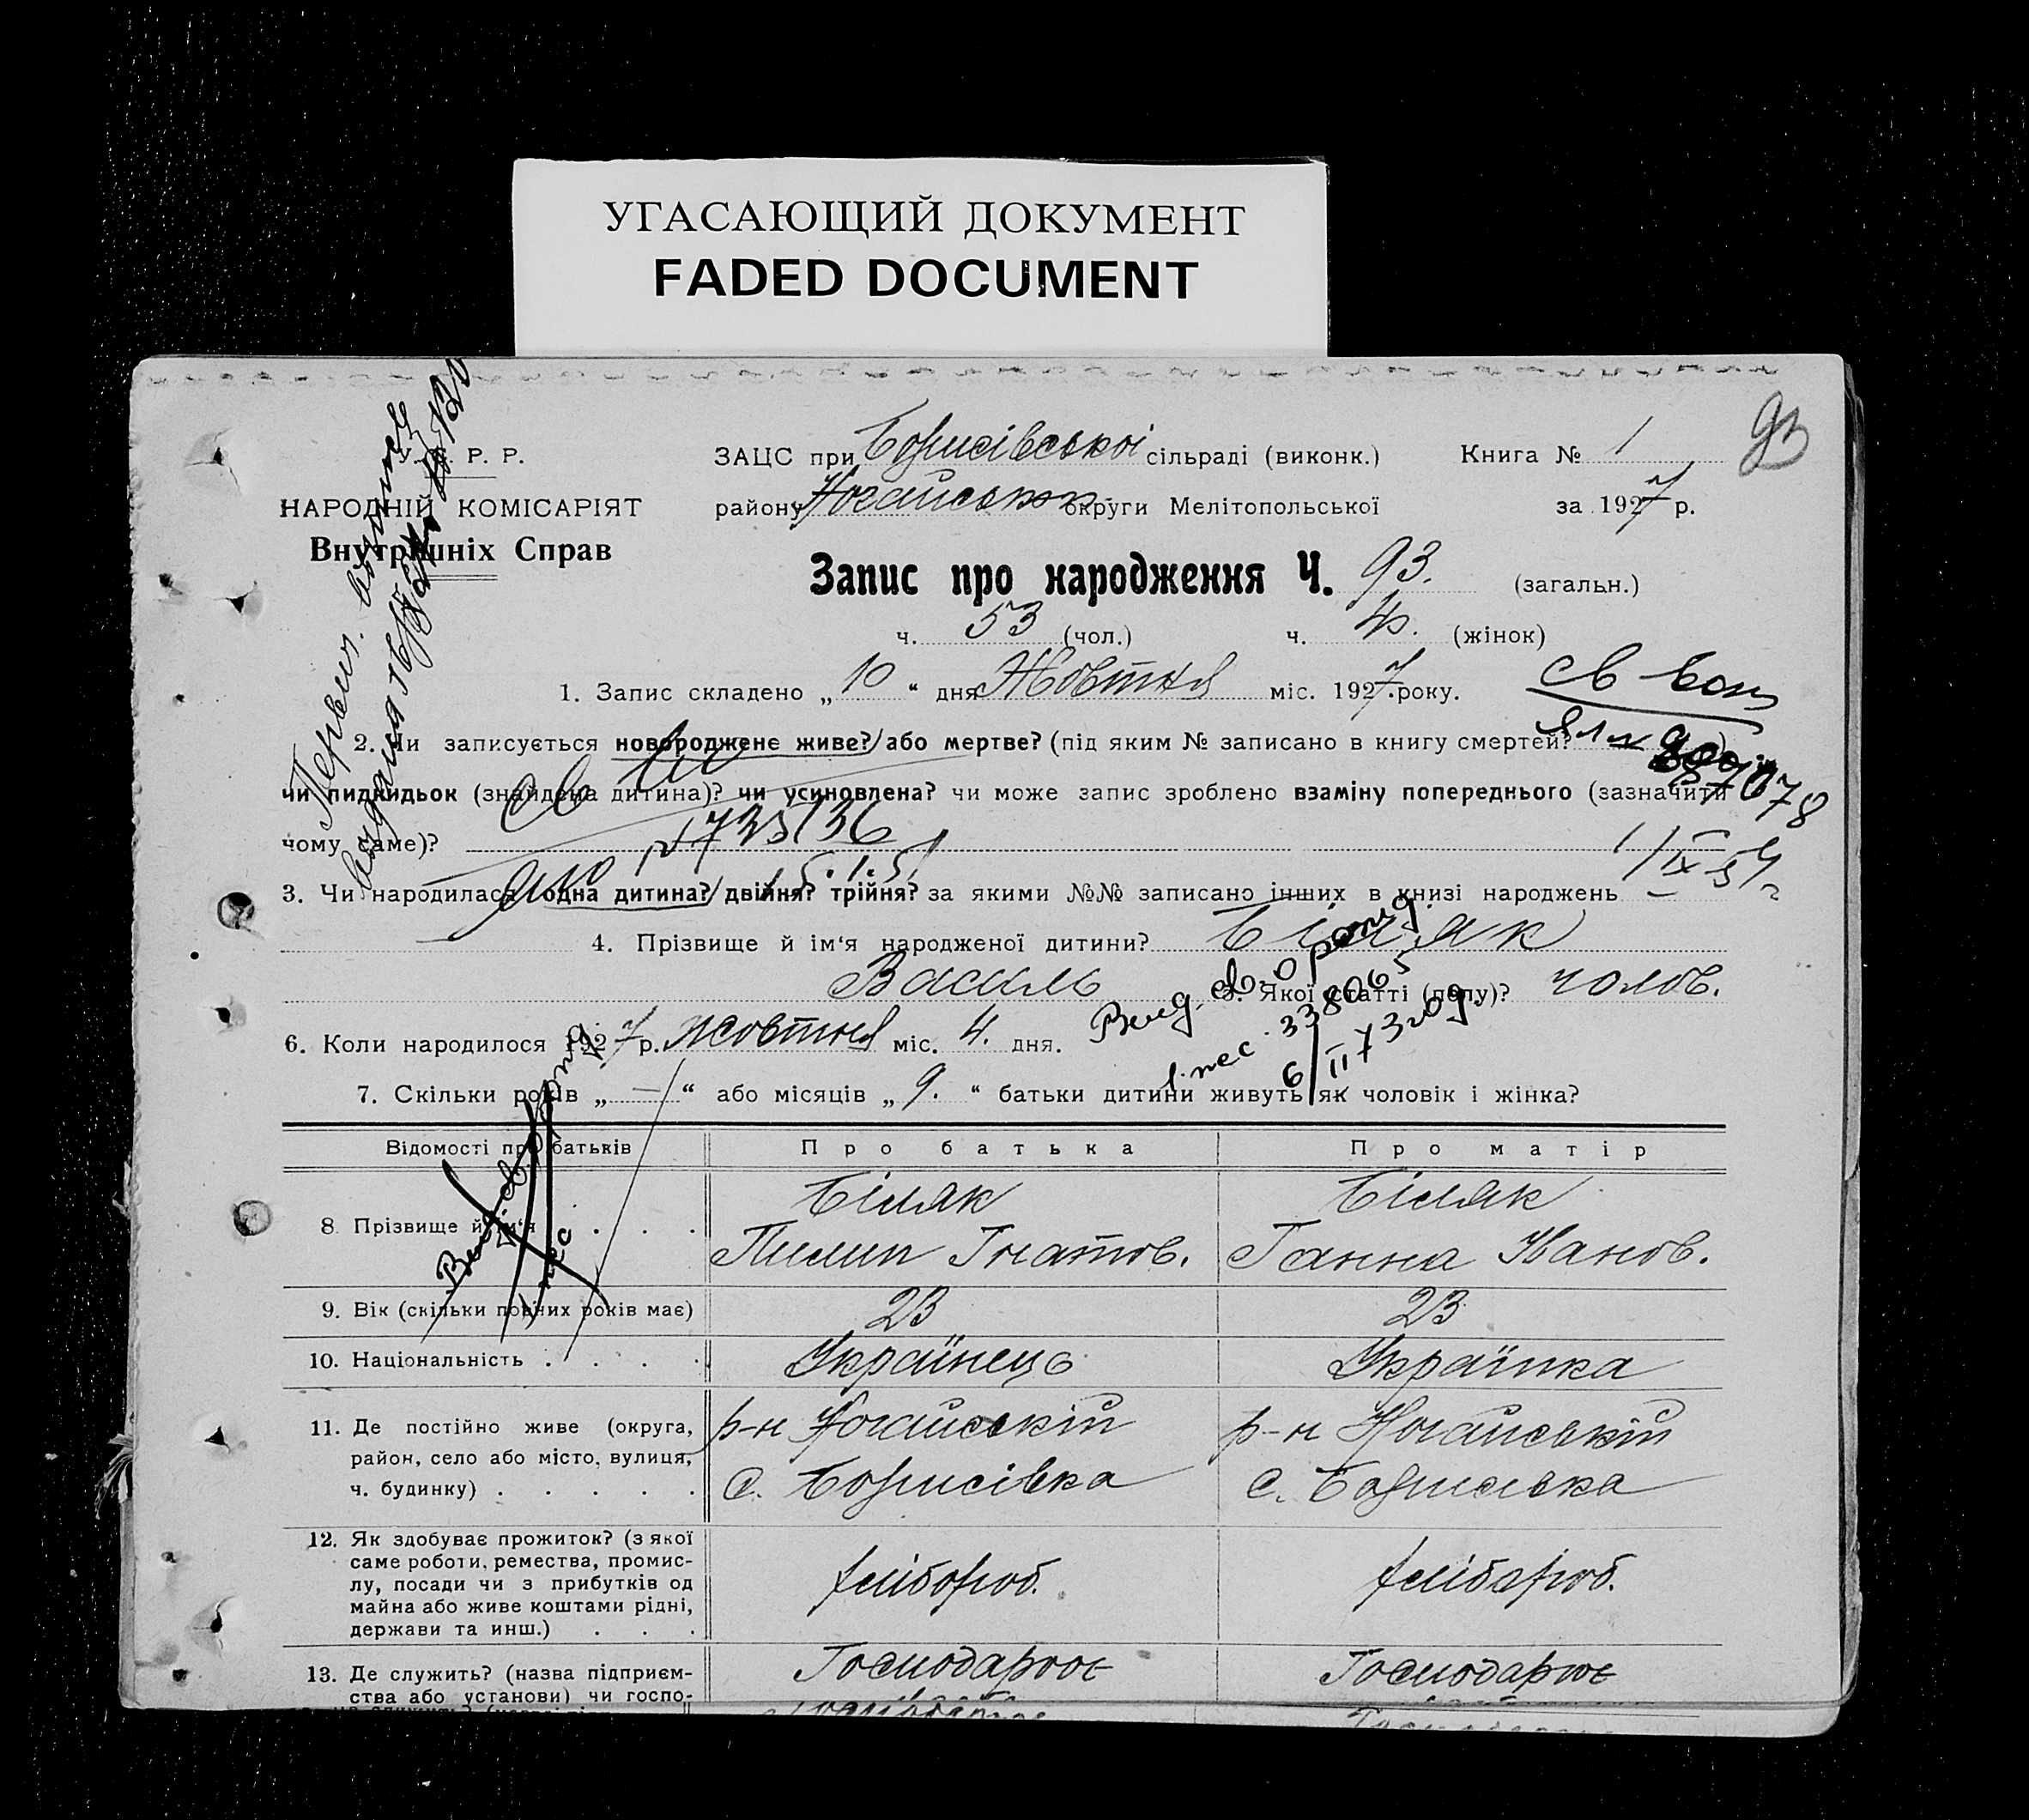 УГАСАЮЩИЙ ДОКУМЕНТ
FADED DOCUMENT
93
У. С. Р. Р.
НАРОДНІЙ КОМІСАРІЯТ
Внутрішніх Справ
ЗАЦС при Борисівської сільраді (виконк.)
Книга № 1
району Ногайськ округи Мелітопольської
за 1927 р.
Запис про народження Ч. 93. (загальн.)
ч. 53 (чол.) ч. 40. (жінок)
1. Запис складено „10“ дня Жовтня міс. 1927. року.
2. Чи записується новороджене живе? або мертве? (під яким № записано в книгу смертей?
чи підкидьок (знайдена дитина)? чи усиновлена? чи може запис зроблено взаміну попереднього (зазначити
чому саме)?
3. Чи народилася одна дитина? двійня? трійня? за якими №№ записано інших в книзі народжень
4. Прізвище й ім‘я народженої дитини? Біляк
Василь 5. Якої статті (полу)? чолов.
6. Коли народилося 1927 р. жовтня міс. 4. дня.
7. Скільки років „—“ або місяців „9.“ батьки дитини живуть як чоловік і жінка?
Первич.
св во
735136
5.1.51
ЯЛ
1/IX 54
338065
6/II 73
Відомості про батьків
Про батька
Про матір
8. Прізвище й ім‘я . . .
Біляк
Пилип Гнатов.
Біляк
Ганна Иванов.
9. Вік (скільки повних років має)
23
23
10. Національність . . . .
Українець
Українка
11. Де постійно живе (округа,
район, село або місто, вулиця,
ч. будинку) . . . . .
р-н Ногайській
с. Борисівка
р-н Ногайській
с. Борисівка
12. Як здобуває прожиток? (з якої
саме роботи, ремества, промис-
лу, посади чи з прибутків од
майна або живе коштами рідні,
держави та инш.) . . .
хлібороб.
хлібароб.
13. Де служить? (назва підприєм-
ства або установи) чи госпо-